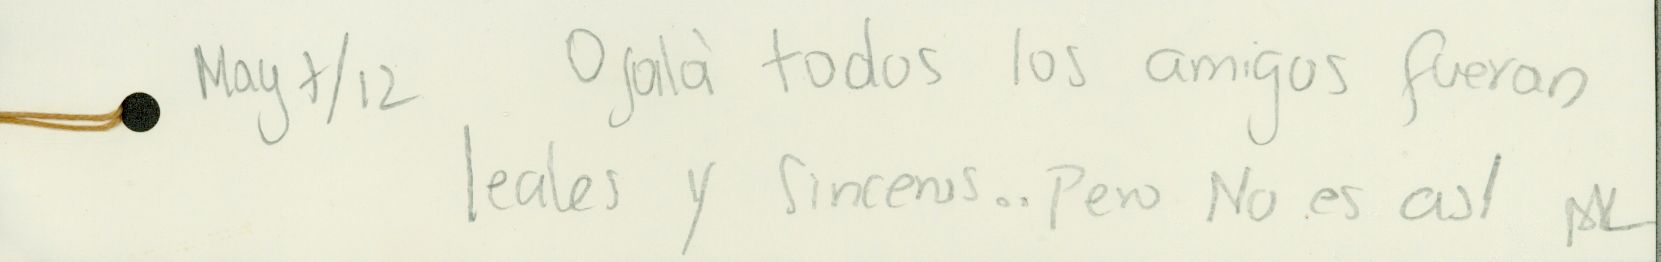 May 7/12 Ojalà todos los amigos fueran
leales y sinceros.. Pero No es así